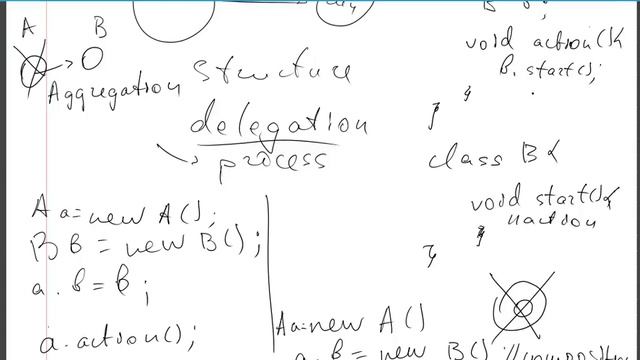 A B
Aggregation
structure
delegation
process
A a = new A();
B b = new B();
a.b = b;
a.action();
void action(){
b.start();
}
}
class B{
void start(){
}
}
A a = new A()
a.b = new B()